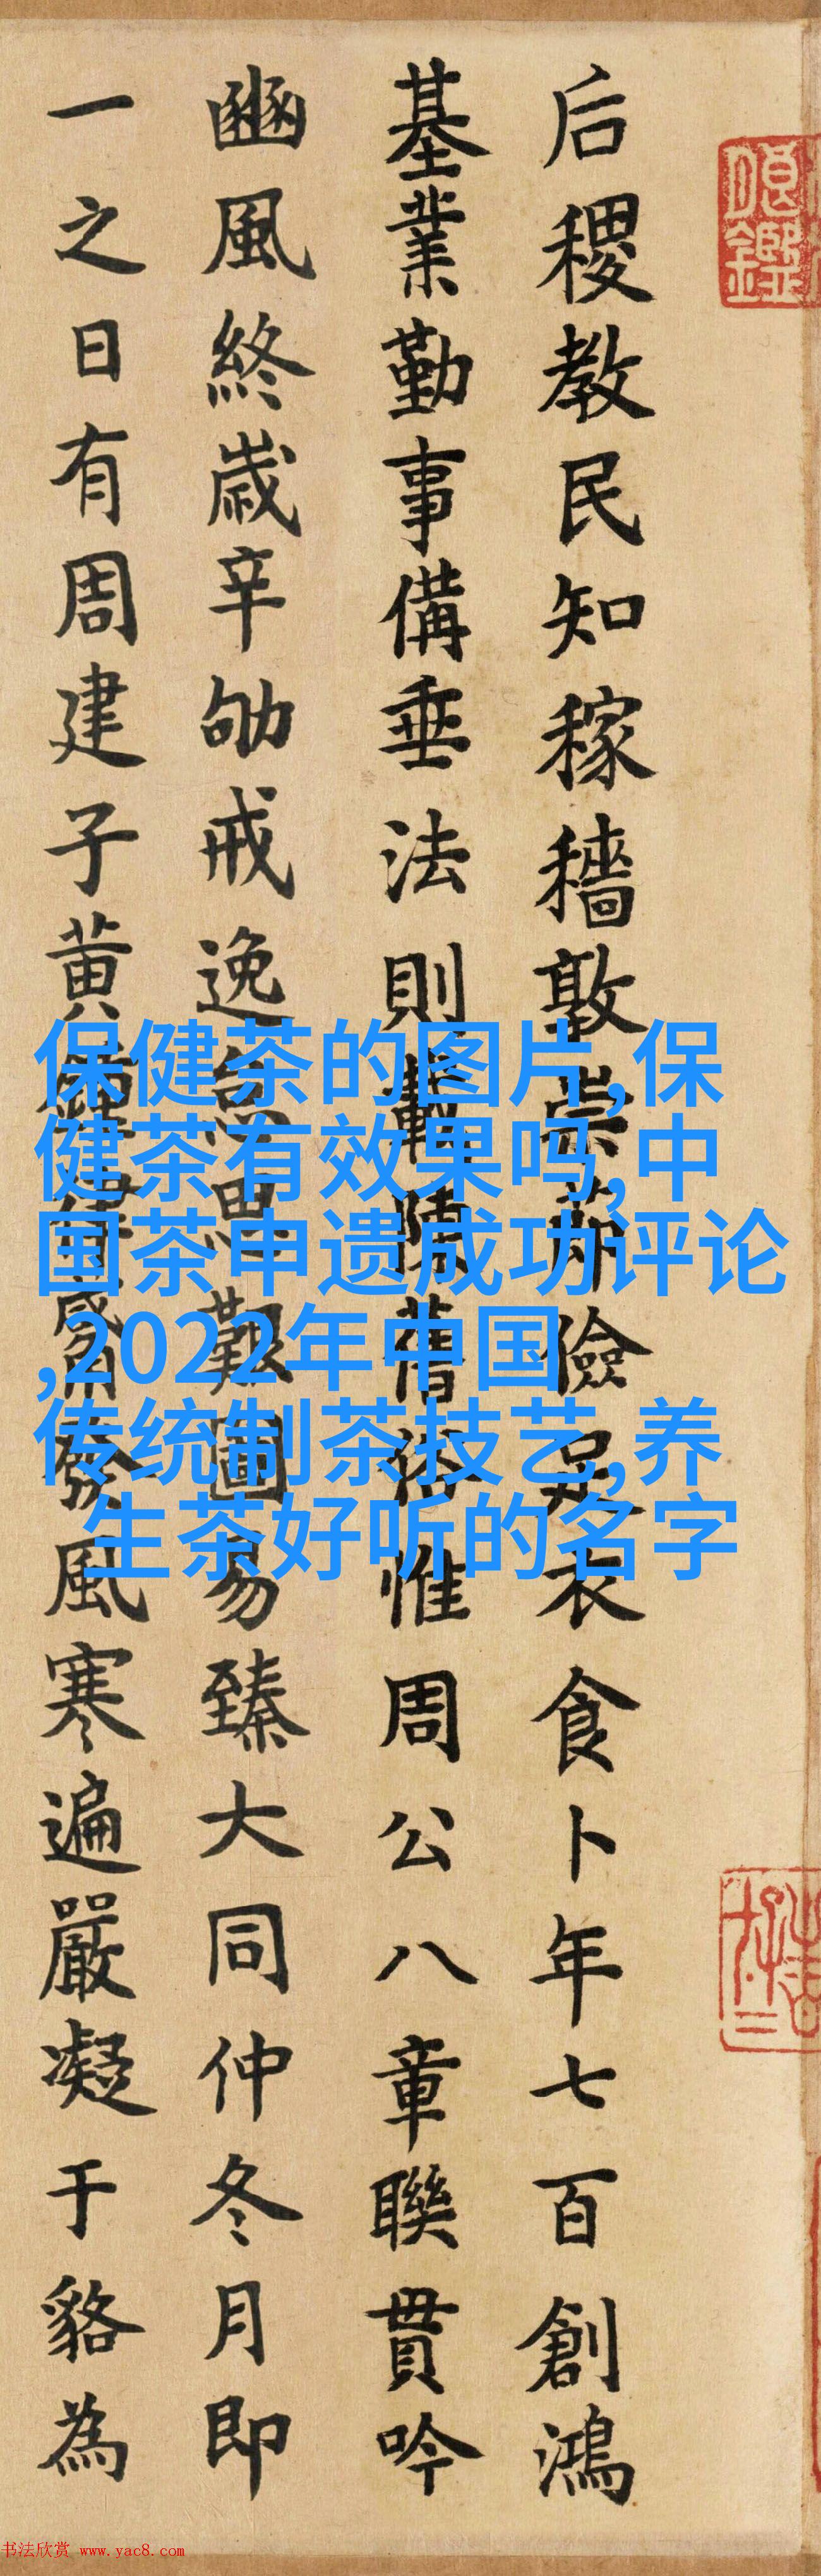 后稷教民知稼穡敦崇節儉足衣食卜年七百創鴻
基業勤事備垂法則載陳舊俗惟周公八章聯貫吟
豳風終歲辛劬戒逸思艱圖易臻大同仲冬月即
一之日有周建子黄鍾律發風寒遍嚴凝于貉為
保健茶的图片,保
健茶有效果吗,中
国茶申遗成功评论
,2022年中国
传统制茶技艺,养
生茶好听的名字
书法欣赏 www.yac8.com